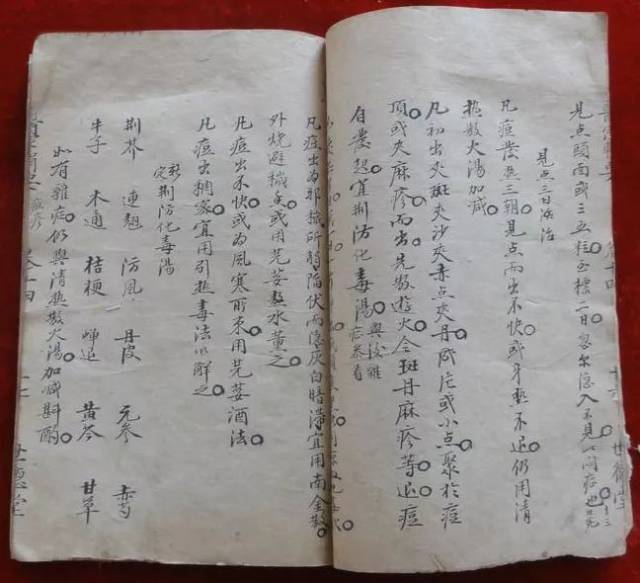 見点頭面或三五粒至標二日忽尔隐入不見
見点三日療治
凡痘發熱三朝見点而出不快或身熱不退仍用清
熱散火湯加减
凡初出夾斑夾沙夾赤点夾丹成片或小点聚於痘
頂或夾麻疹而出先散遊火令斑丹麻疹等退痘
自發起宜荆防化毒湯
凡痘出為邪穢所觸陷伏而隐灰白暗滞宜用南金散
外燒避穢魚或用芫荽熱水薰之
凡痘出不快或為風寒所束用芫荽酒法
凡痘出稠密宜用引熱毒法以解之
新定荆防化毒湯
荆芥 連翹 防風 丹皮 元参 赤芍
牛子 木通 桔梗 蟬退 黄芩 甘草
如有雜症仍與清热散火湯加减斟酌